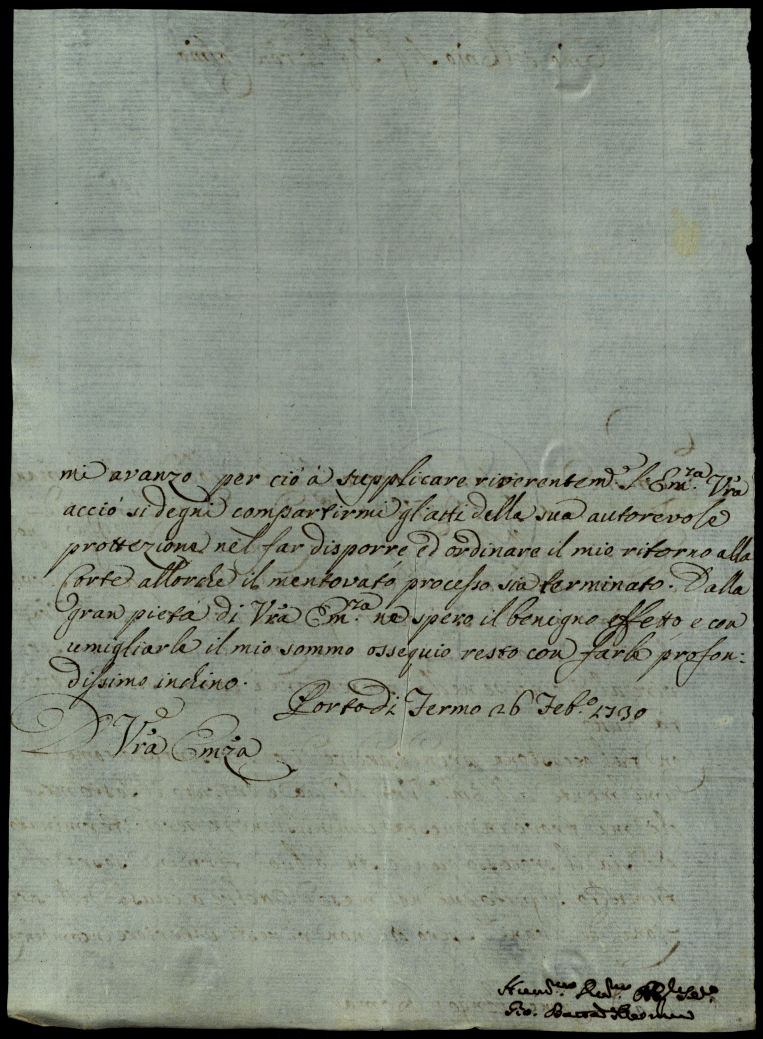 mi avanzo per ciò à supplicare riverentem.e l'Em.za Vra
acciò si degni compartirmi gl'atti della sua autorevole
prottezione nel far disporre ed ordinare il mio ritorno alla
Corte allorche il mentovato processo sia terminato. Dalla
gran pietà di Vra Em.za ne spero il benigno effetto e con
umigliarle il mio sommo ossequio resto con farle profon:
dissimo inchino.
Porto di Fermo 26 Feb.o 1730
D Vra Emza